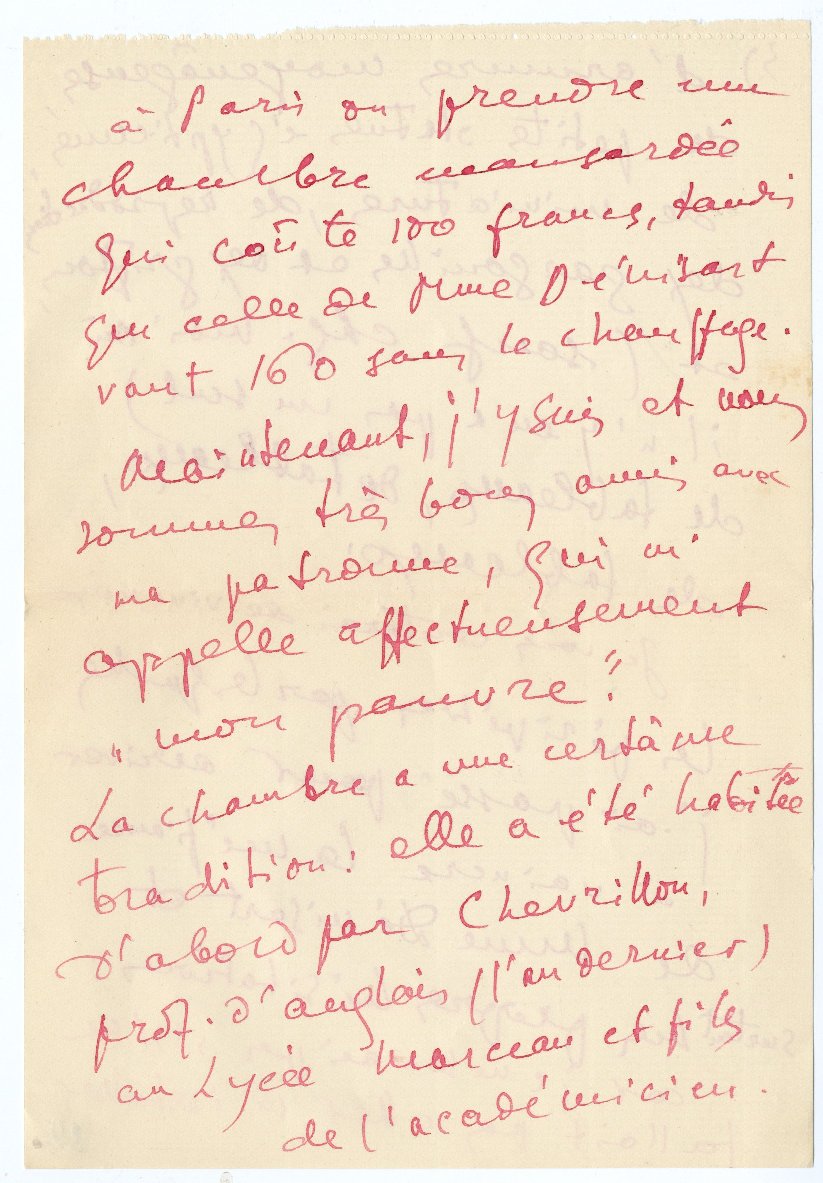 à Paris ou prendre une
chambre mansardée
qui coûte 100 francs, tandis
que celle de Mme Dénisart
vaut 160 sans le chauffage.
Maintenant, j'y suis et nous
sommes très bons amis avec
ma patronne, qui m'
appelle affectueusement
"mon pauvre".
La chambre a une certaine
tradition : elle a été habitée
d'abord par Chevrillon,
prof. d'anglais (l'an dernier)
au Lycée Marceau et fils
de l'académicien.